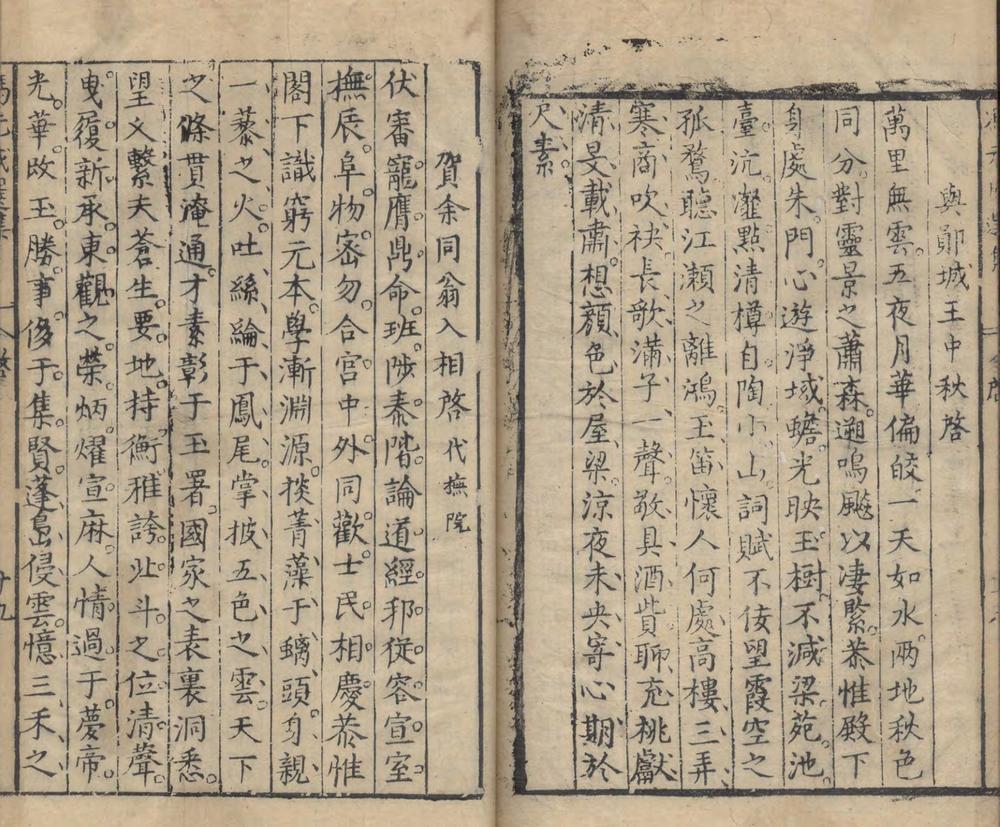 與鄖城王中秋啓
萬里無雲五夜月華偏皎一天如水兩地秋色
同分對靈景之蕭森遡嗚飈以凄緊恭惟殿下
身處朱門心遊淨域蟾光映玉樹不減梁苑池
臺沆瀣點清樽自陶小山詞賦不佞望霞空之
孤鶩聽江瀬之離鴻玉笛懷人何處高樓三弄
寒商吹袂長歌滿子一聲敬具酒貲聊充桃獻
清旻載肅想顔色於屋梁涼夜未央寄心期於
尺素
賀余同翁入相啓代撫院
伏審寵膺鼎命班陟泰階論道經邦從容宣室
撫辰阜物密勿合宮中外同歡士民相慶恭惟
閣下識窮元本學漸淵源掞菁藻于螭頭身親
一藜之火吐絲綸于鳳尾掌披五色之雲天下
之條貫淹通才素彰于玉署國家之表裏洞悉
望乂繫夫蒼生要地持衡雅誇北斗之位清聲
曳履新承東觀之榮炳燿宣麻人情過于夢帝
光華改玉勝事侈于集賢蓬島侵雲憶三禾之
十九